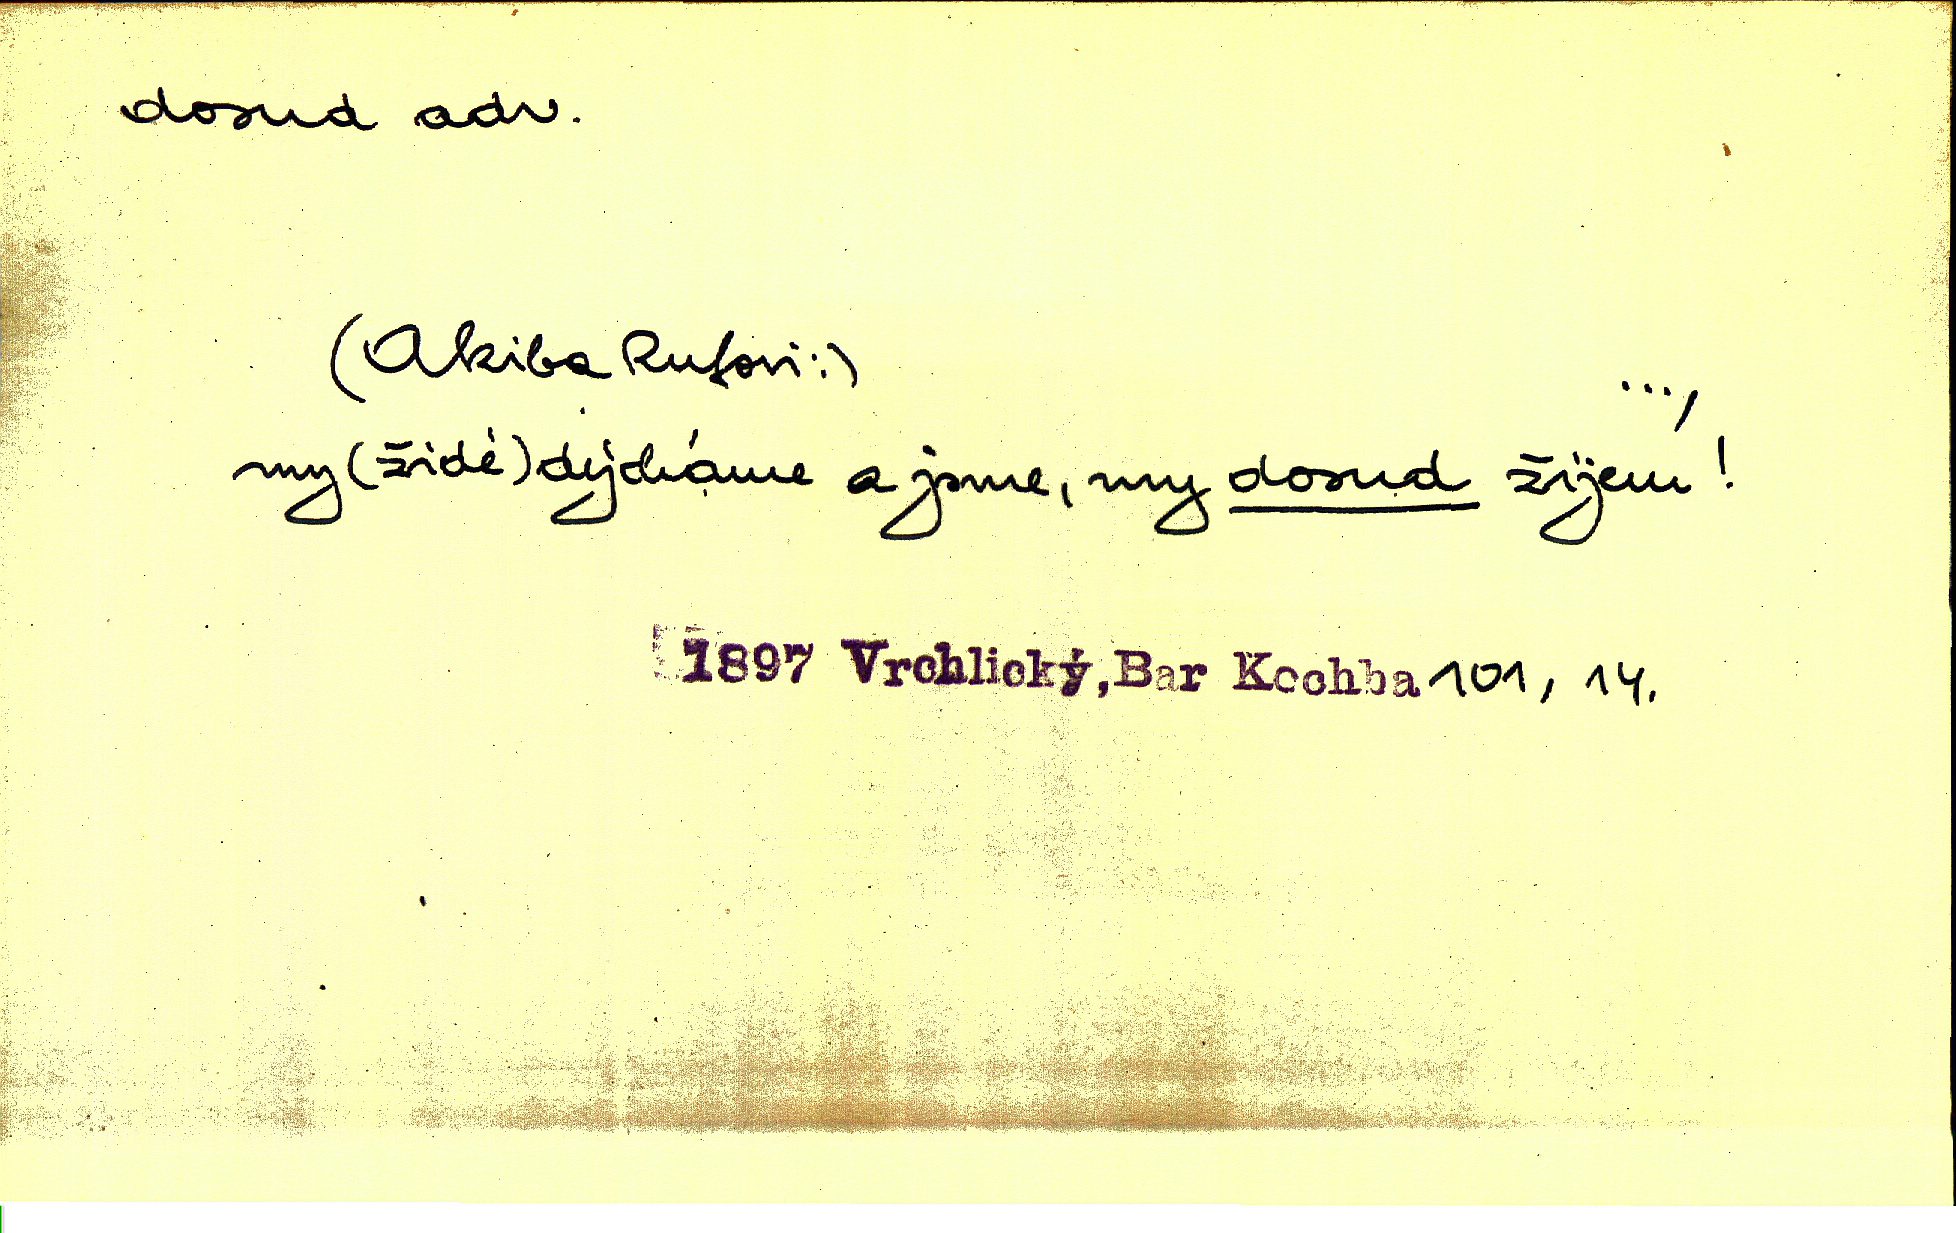 dosud adv.
(Akiba Rufovi:)
...,
my (židé) dýcháme a jsme, my dosud žijem!
1897 Vrchlický, Bar Kochba 101, 14.